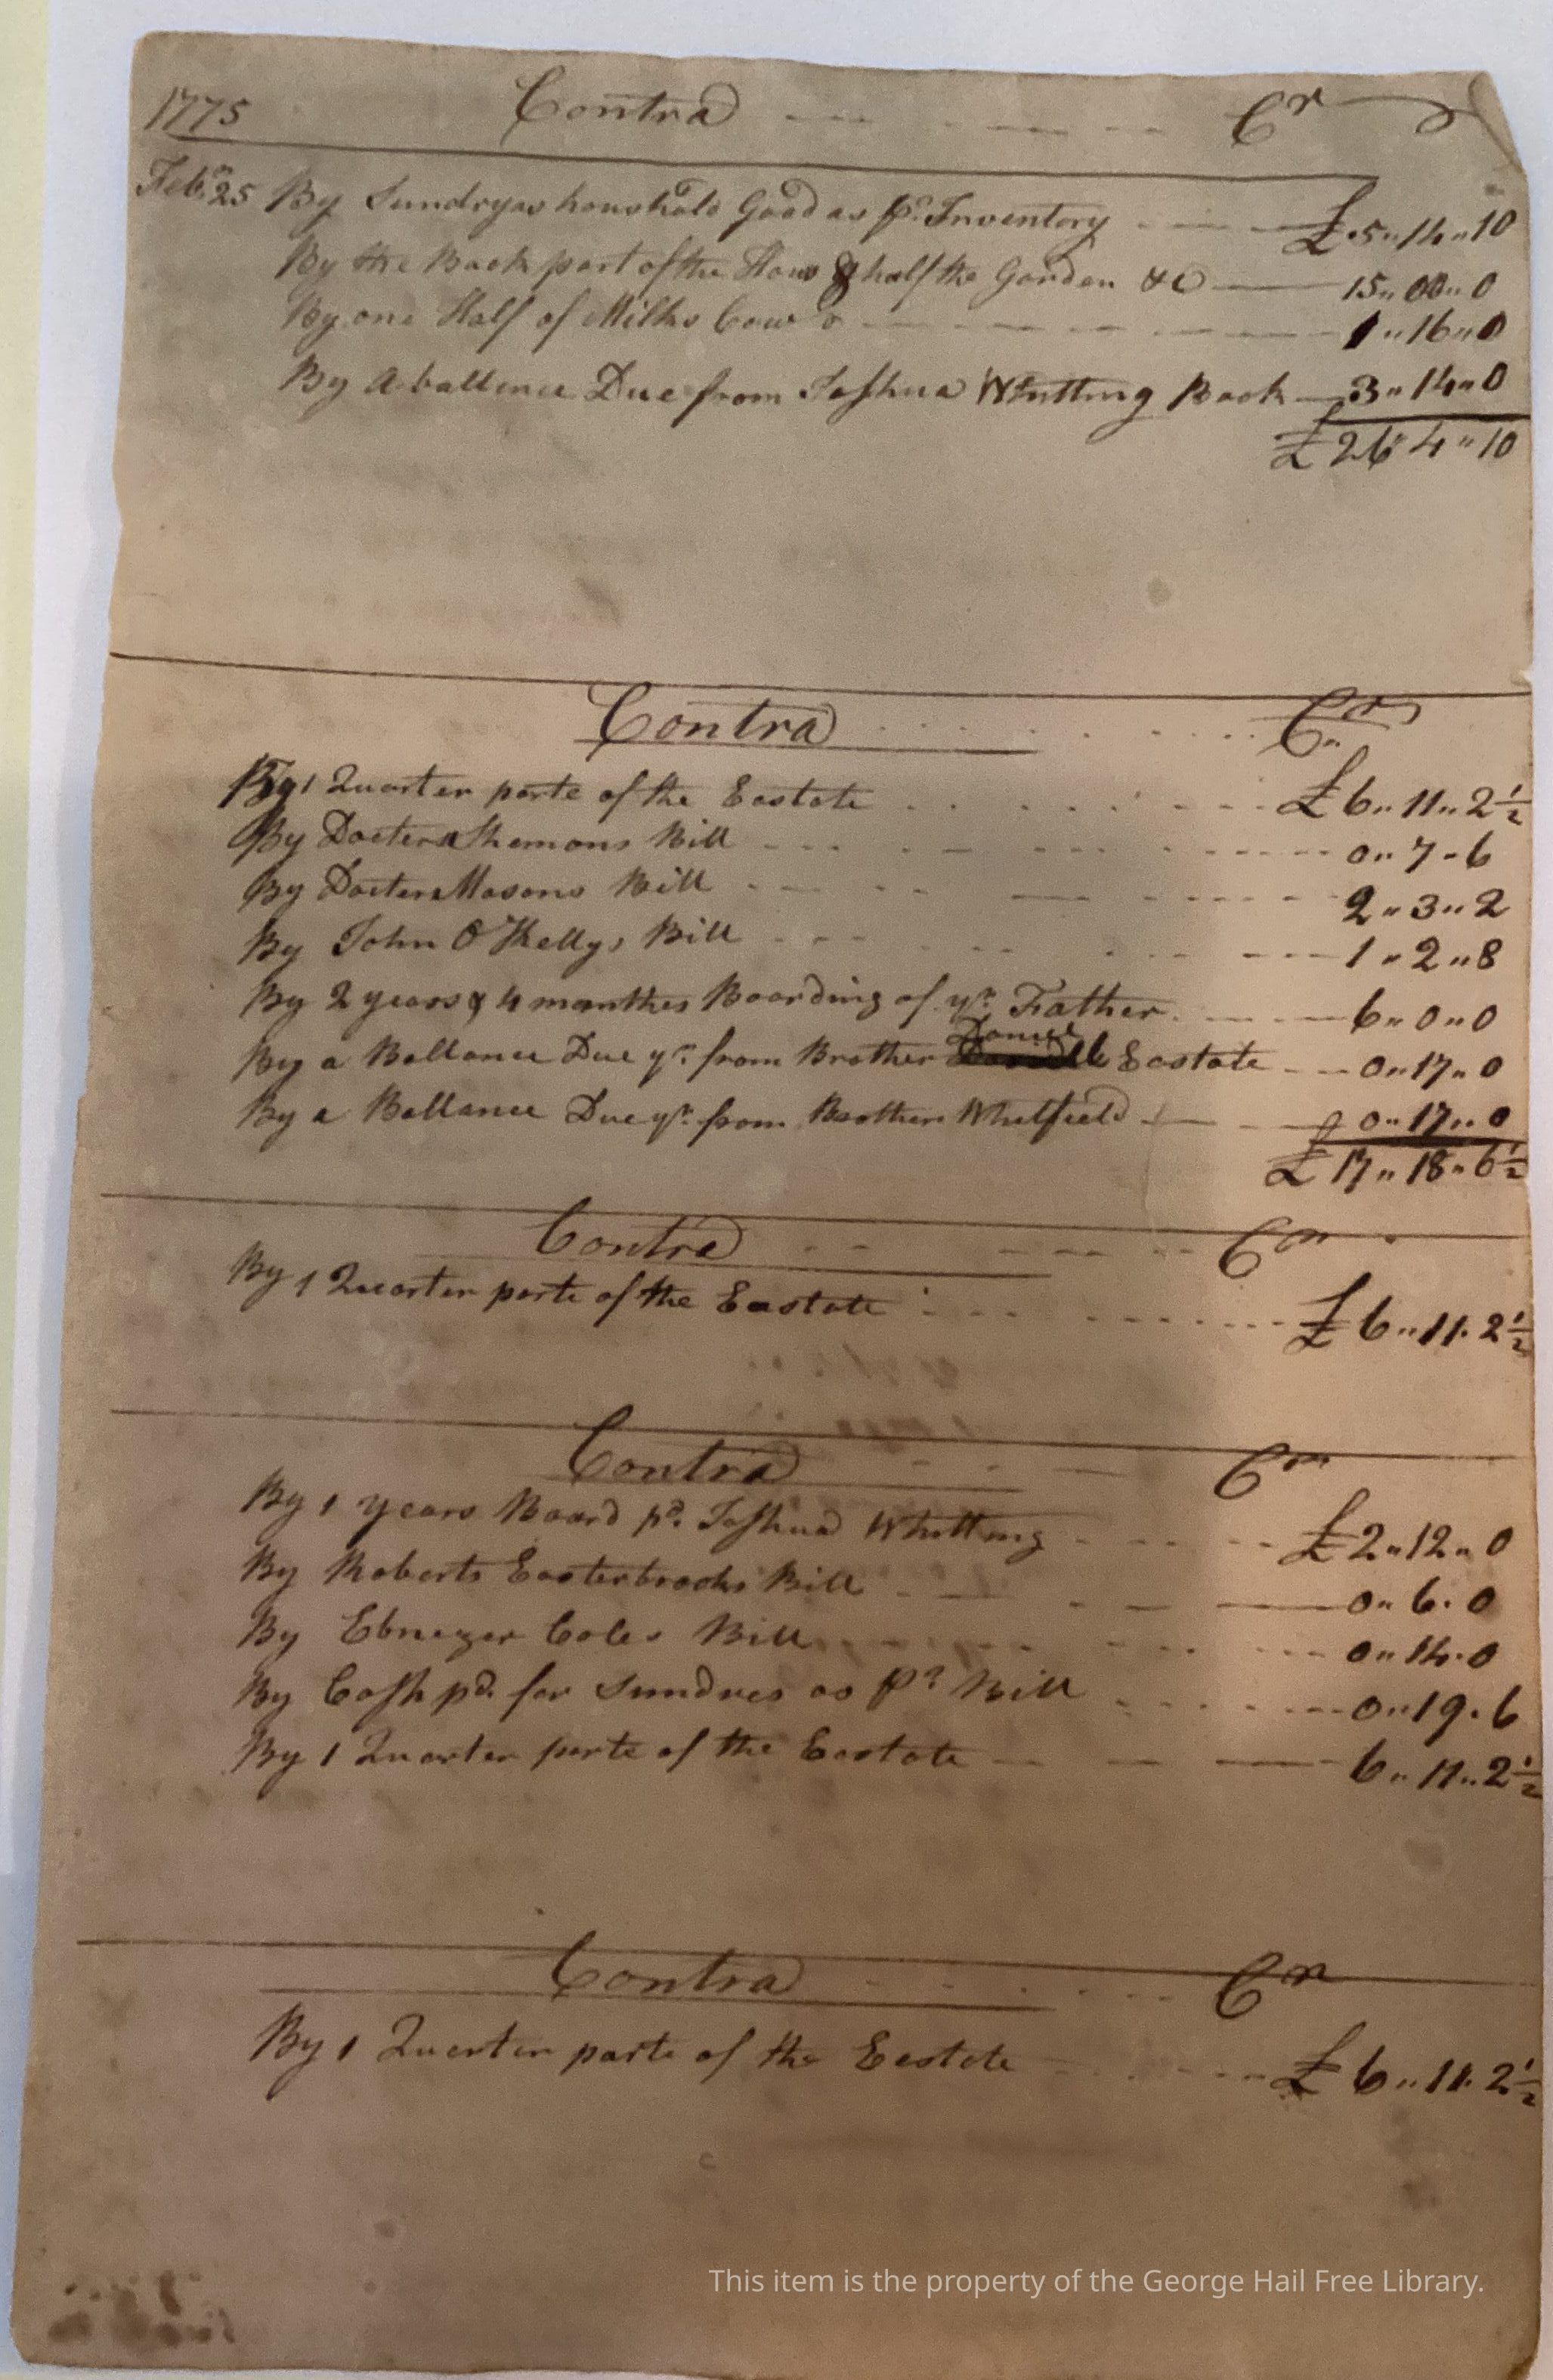 1775 Contra Cr
Febr. 25 By Sundryas houshold Good as pr. Inventory £ 5 " 14 " 10
By the Back part of the Hous & half the Garden &C 15 " 00 " 0
By one Half of Milks Cow 1 " 16 " 0
By A ballence Due from Joshua Whitting Back 3 " 14 " 0
£ 26 " 4 " 10
Contra Cr
By 1 Quarter parte of the Eastate £ 6 " 11 " 2 1/2
By Docter Bill 0 " 7 - 6
By Docter Masons Bill 2 " 3 " 2
By John O'Kellys Bill 1 " 2 " 8
By 2 years & 4 manthes Boarding of yr. Father 6 " 0 " 0
By a Ballance Due yr. from Brother Daniel Eastate 0 " 17 " 0
By a Ballance Due yr. from Brother Whitfield 0 " 17 " 0
£ 17 " 18 " 6 1/2
Contra Cr
By 1 Quarter parte of the Eastate £ 6 " 11 . 2 1/2
Contra Cr
By 1 years Board pd. Joshua Whitting £ 2 " 12 " 0
By Roberts Easterbrooks Bill 0 " 6 . 0
By Ebnezer Coles Bill 0 " 14 . 0
By Cash pd. for Sundres as pr Bill 0 " 19 . 6
By 1 Quarter parte of the Eastate 6 " 11 " 2 1/2
Contra Cr
By 1 Quarter parte of the Eestate £ 6 " 11 . 2 1/2
This item is the property of the George Hail Free Library.